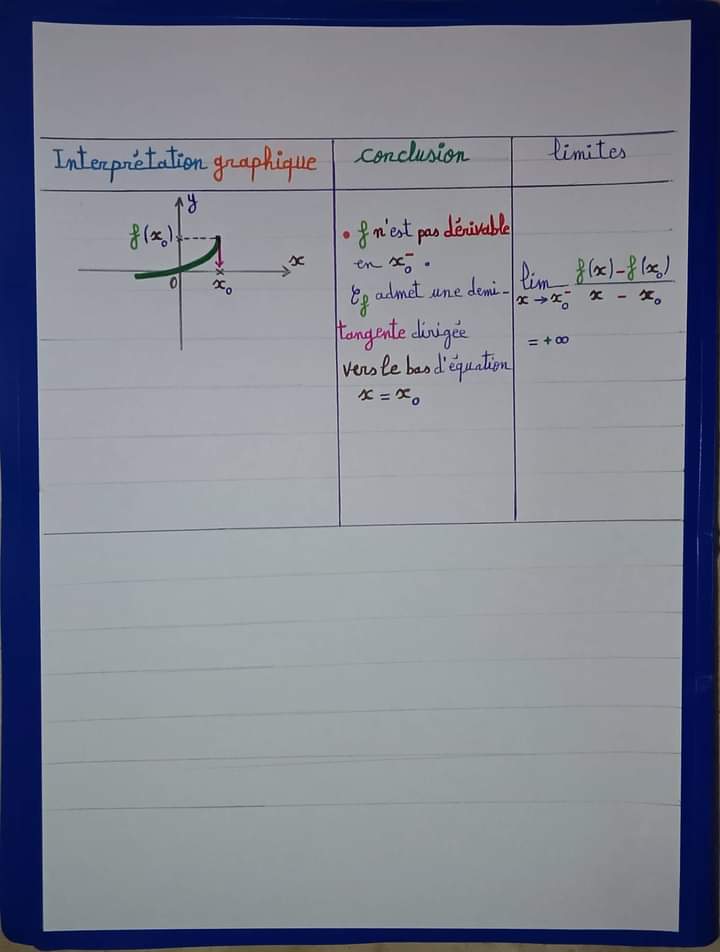 Interprétation graphique
conclusion
limites
y
f(x₀)
x
0
x₀
• f n'est pas dérivable
en x₀⁻ .
𝒞f admet une demi-
tangente dirigée
vers le bas d'équation
x = x₀
lim x→x₀⁻ (f(x)-f(x₀))/(x - x₀)
= +∞